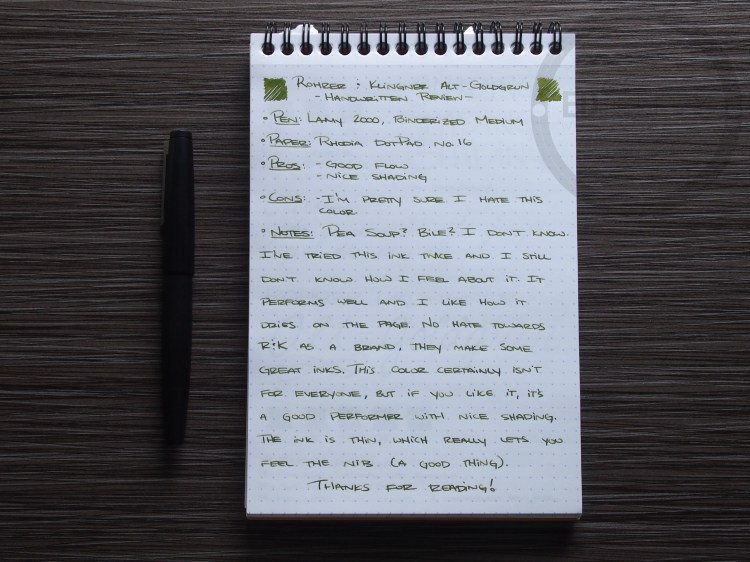 Rohrer & Klingner Alt-Goldgrun
- Handwritten Review -
• Pen: Lamy 2000, Binderized Medium
• Paper: Rhodia DotPad No. 16
• Pros: - Good flow
- Nice shading
• Cons: - I'm pretty sure I hate this
color
• Notes: Pea soup? Bile? I don't know.
I've tried this ink twice and I still
don't know how I feel about it. It
performs well and I like how it
dries on the page. No hate towards
R&K as a brand, they make some
great inks. This color certainly isn't
for everyone, but if you like it, it's
a good performer with nice shading.
The ink is thin, which really lets you
feel the nib (a good thing).
Thanks for reading!